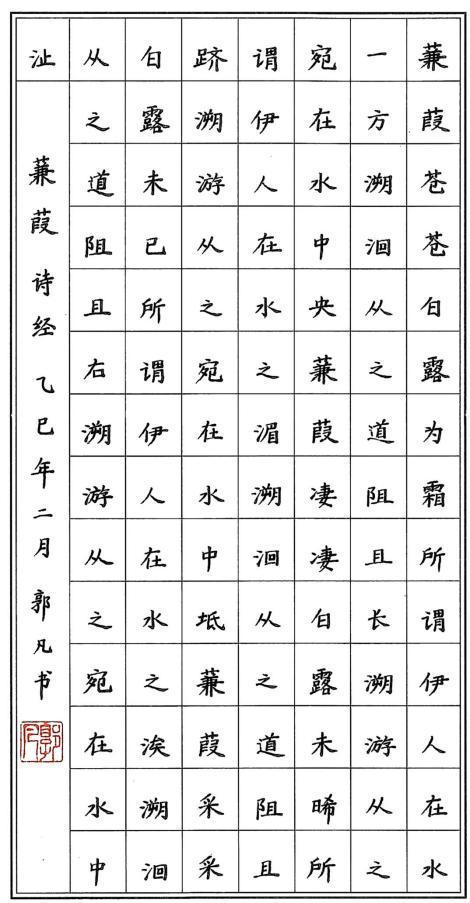 蒹葭苍苍白露为霜所谓伊人在水
一方溯洄从之道阻且长溯游从之
宛在水中央蒹葭凄凄白露未晞所
谓伊人在水之湄溯洄从之道阻且
跻溯游从之宛在水中坻蒹葭采采
白露未已所谓伊人在水之涘溯洄
从之道阻且右溯游从之宛在水中
沚
蒹葭 诗经 乙巳年二月 郭凡书
郭凡